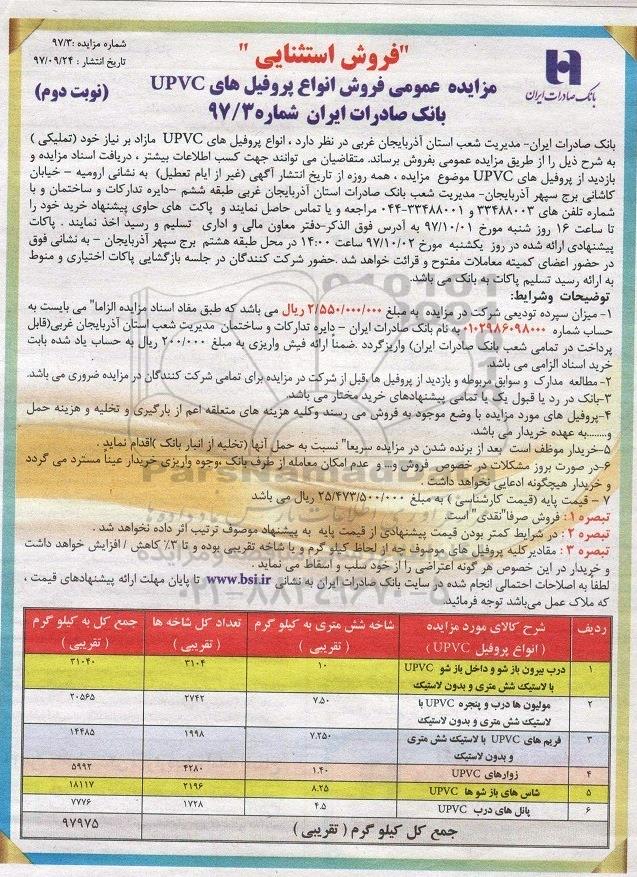 شماره مزایده :۹۷/۳
تاریخ انتشار : ۹۷/۰۹/۲۴
(نوبت دوم)
"فروش استثنایی "
مزایده عمومی فروش انواع پروفیل های UPVC
بانک صادرات ایران شماره۹۷/۳
بانک صادرات ایران
بانک صادرات ایران- مدیریت شعب استان آذربایجان غربی در نظر دارد ، انواع پروفیل های UPVC مازاد بر نیاز خود (تملیکی )
به شرح ذیل را از طریق مزایده عمومی بفروش برساند. متقاضیان می توانند جهت کسب اطلاعات بیشتر ، دریافت اسناد مزایده و
بازدید از پروفیل های UPVC موضوع مزایده ، همه روزه از تاریخ انتشار آگهی (غیر از ایام تعطیل) به نشانی ارومیه – خیابان
کاشانی برج سپهر آذربایجان- مدیریت شعب بانک صادرات استان آذربایجان غربی طبقه ششم –دایره تدارکات و ساختمان و با
شماره تلفن های ۳۳۴۸۸۰۰۳ و ۳۳۴۸۸۰۰۱-۰۴۴ مراجعه و یا تماس حاصل نمایند و پاکت های حاوی پیشنهاد خرید خود را
تا ساعت ۱۶ روز شنبه مورخ ۹۷/۱۰/۰۱ به آدرس فوق الذکر-دفتر معاون مالی و اداری تسلیم و رسید اخذ نمایند . پاکات
پیشنهادی ارائه شده در روز یکشنبه مورخ ۹۷/۱۰/۰۲ ساعت ۱۴:۰۰ در محل طبقه هشتم برج سپهر آذربایجان – به نشانی فوق
در حضور اعضای کمیته معاملات مفتوح و قرائت خواهد شد .حضور شرکت کنندگان در جلسه بازگشایی پاکات اختیاری و منوط
به ارائه رسید تسلیم پاکات به بانک می باشد.
توضیحات وشرایط:
۱- میزان سپرده تودیعی شرکت در مزایده به مبلغ ۲/۵۵۰/۰۰۰/۰۰۰ ریال می باشد که طبق مفاد اسناد مزایده الزاما" می بایست به
حساب شماره ۰۱۰۲۹۸۶۰۹۸۰۰۰ به نام بانک صادرات ایران – دایره تدارکات و ساختمان مدیریت شعب استان آذربایجان غربی(قابل
پرداخت در تمامی شعب بانک صادرات ایران) واریزگردد .ضمناً ارائه فیش واریزی به مبلغ ۲۰۰/۰۰۰ ریال به حساب یاد شده بابت
خرید اسناد الزامی می باشد.
۲- مطالعه مدارک و سوابق مربوطه و بازدید از پروفیل ها ،قبل از شرکت در مزایده برای تمامی شرکت کنندگان در مزایده ضروری می باشد.
۳-بانک در رد یا قبول یک یا تمامی پیشنهادهای خرید مختار می باشد.
۴-پروفیل های مورد مزایده با وضع موجود به فروش می رسند وکلیه هزینه های متعلقه اعم از بارگیری و تخلیه و هزینه حمل
و.......به عهده خریدار می باشد.
۵-خریدار موظف است بعد از برنده شدن در مزایده سریعا" نسبت به حمل آنها (تخلیه از انبار بانک )اقدام نماید .
۶-در صورت بروز مشکلات در خصوص فروش و... و عدم امکان معامله از طرف بانک ،وجوه واریزی خریدار عیناً مسترد می گردد
و خریدار هیچگونه ادعایی نخواهد داشت .
۷ - قیمت پایه (قیمت کارشناسی ) به مبلغ ۲۵/۴۷۳/۵۰۰/۰۰۰ ریال می باشد
تبصره ۱ : فروش صرفا"نقدی" است.
تبصره ۲ : در شرایط کمتر بودن قیمت پیشنهادی از قیمت پایه به پیشنهاد موصوف ترتیب اثر داده نخواهد شد .
تبصره ۳ : مقادیر کلیه پروفیل های موصوف چه از لحاظ کیلو گرم و یا شاخه تقریبی بوده و تا ۳٪ کاهش / افزایش خواهد داشت
و خریدار در این خصوص هر گونه اعتراضی را از خود سلب و اسقاط می نماید .
لطفاً به اصلاحات احتمالی انجام شده در سایت بانک صادرات ایران به نشانی www.bsi.ir تا پایان مهلت ارائه پیشنهادهای قیمت ،
که ملاک عمل می‌باشد توجه فرمائید.
ردیف شرح کالای مورد مزایده ( انواع پروفیل UPVC ) شاخه شش متری به کیلو گرم ( تقریبی ) تعداد کل شاخه ها ( تقریبی ) جمع کل به کیلو گرم ( تقریبی )
۱ درب بیرون باز شو و داخل باز شو UPVC با لاستیک شش متری و بدون لاستیک ۱۰ ۳۱۰۴ ۳۱۰۴۰
۲ مولیون ها درب و پنجره UPVC با لاستیک شش متری و بدون لاستیک ۷.۵۰ ۲۷۴۲ ۲۰۵۶۵
۳ فریم های UPVC با لاستیک شش متری و بدون لاستیک ۷.۲۵۰ ۱۹۹۸ ۱۴۴۸۵
۴ زوارهای UPVC ۱.۴۰ ۴۲۸۰ ۵۹۹۲
۵ شاس های باز شو ها UPVC ۸.۲۵ ۲۱۹۶ ۱۸۱۱۷
۶ پانل های درب UPVC ۴.۵ ۱۷۲۸ ۷۷۷۶
جمع کل کیلو گرم ( تقریبی ) ۹۷۹۷۵